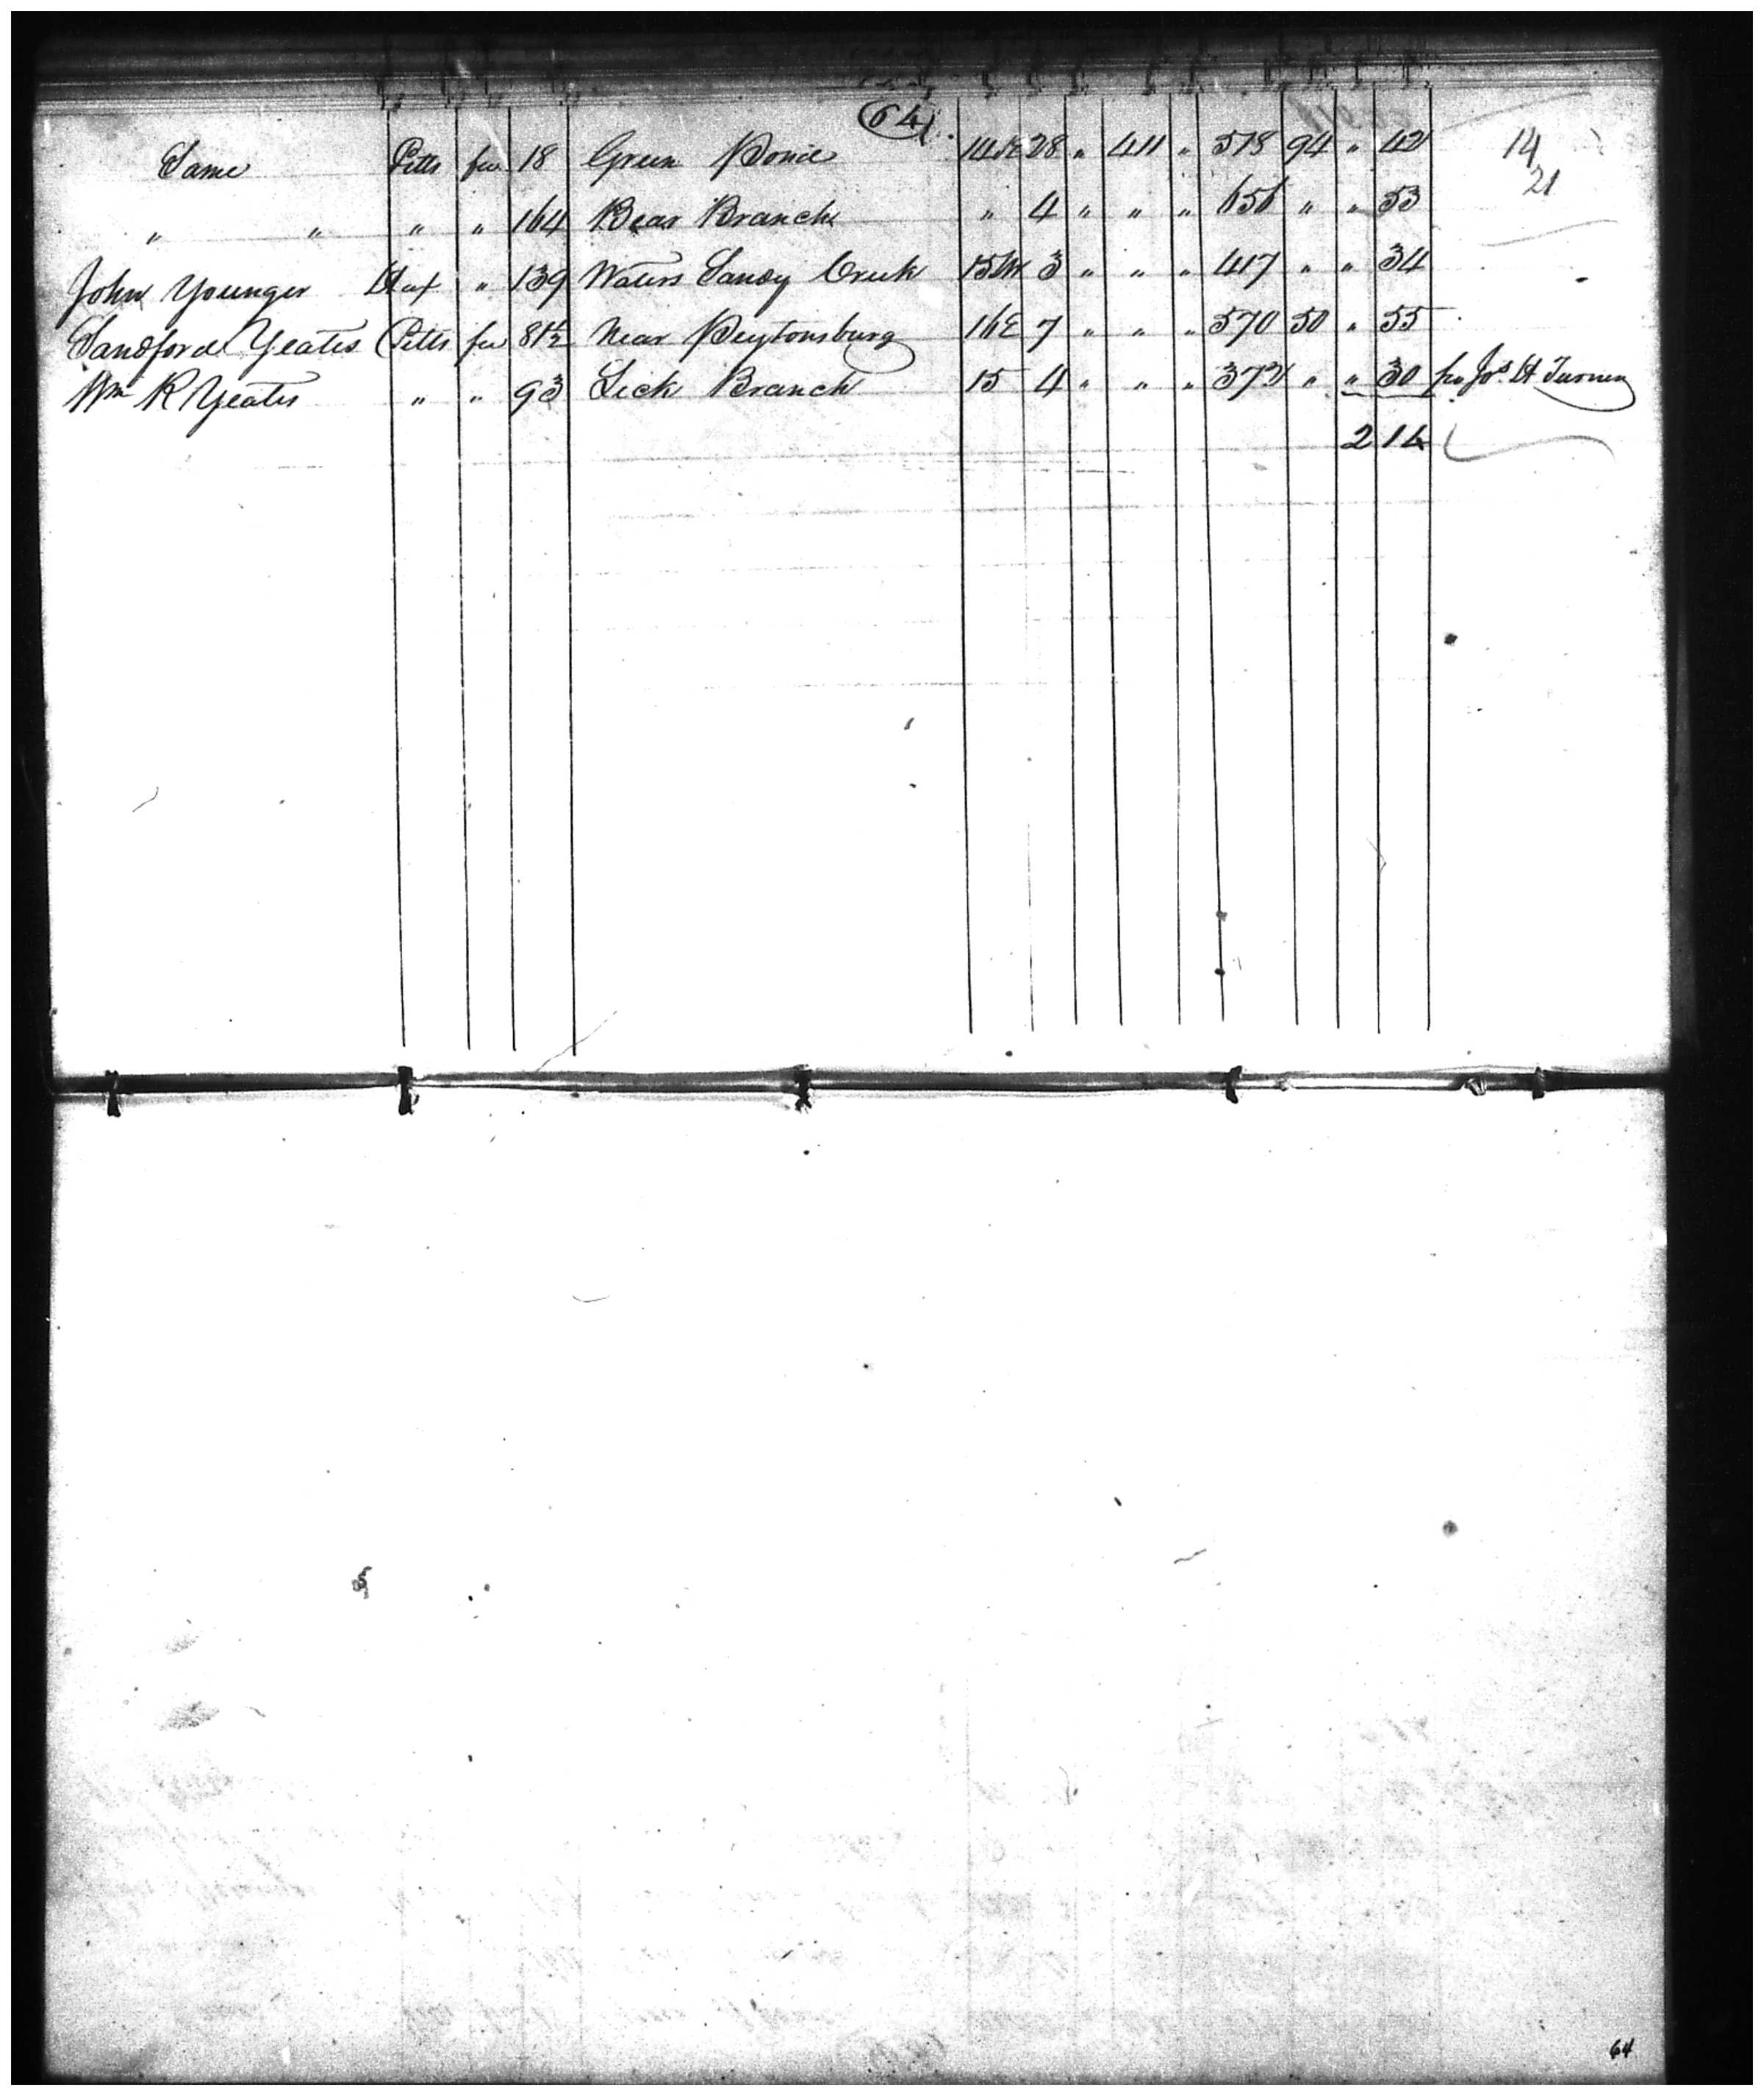 64
Same Pitts fee 18 Green Pond 14 SE 28 " 4 11 " 518 94 " 42 14
" " " " 164 Bear Branch " 4 " " " 656 " " 53 21
John Younger Hax " 139 Waters Sandy Creek 15 W 3 " " " 417 " " 34
Sandford Yeates Pitts fee 81½ Near Peytonsburg 16 E 7 " " " 570 50 " 55
Wm R Yeates " " 93 Lick Branch 15 4 " " " 372 " " 30 pr Jos H Turner
2 14
64